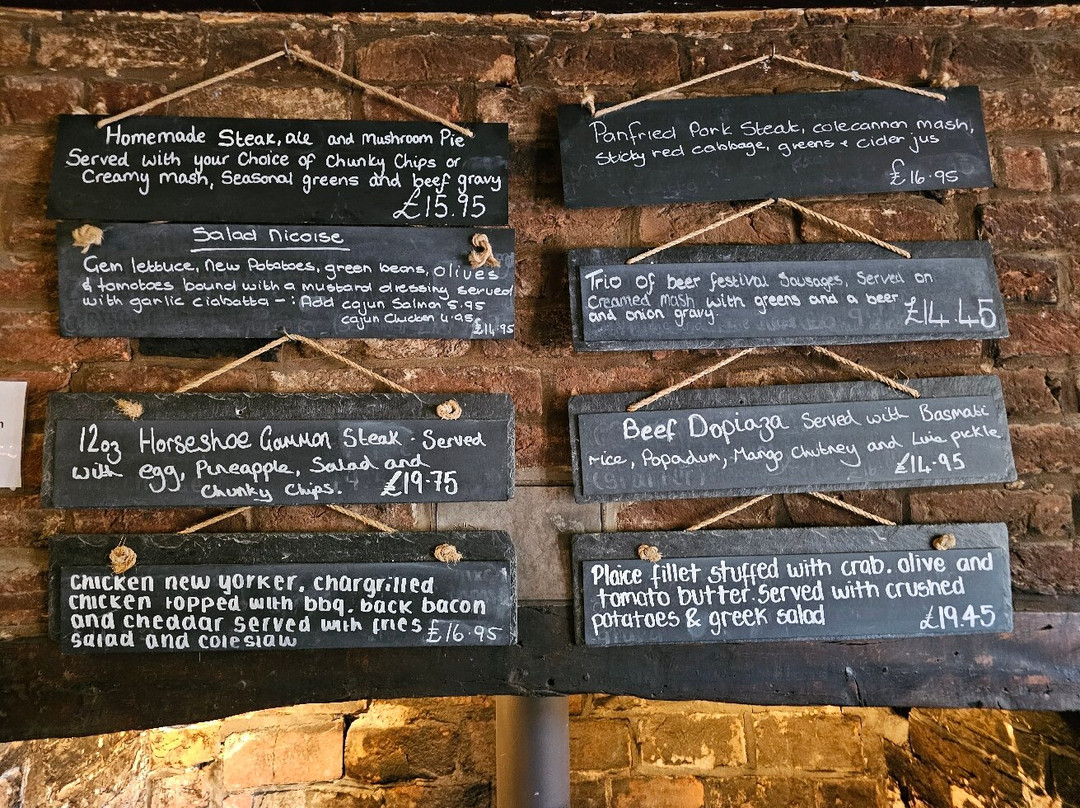 Homemade Steak, ale and mushroom Pie
Served with your Choice of Chunky Chips or
Creamy mash, Seasonal greens and beef gravy
£15.95
Salad Nicoise
Gem lettuce, New Potatoes, green beans, olives
& tomatoes bound with a mustard dressing served
with garlic ciabatta - : Add cajun Salmon 5.95
cajun Chicken 4.95
£14.95
12oz Horseshoe Gammon Steak - Served
with egg, Pineapple, Salad and
Chunky Chips. £19.75
chicken new yorker, chargrilled
chicken topped with bbq, back bacon
and cheddar served with fries £16.95
salad and coleslaw
Panfried Pork Steak, colecannon mash,
Sticky red cabbage, greens + cider jus
£16.95
Trio of beer festival Sausages, Served on
Creamed mash with greens and a beer
and onion gravy. £14.45
Beef Dopiaza Served with Basmati
rice, Popadum, Mango Chutney and Lime pickle
£14.95
Plaice fillet stuffed with crab, olive and
tomato butter. Served with crushed
potatoes & greek salad £19.45